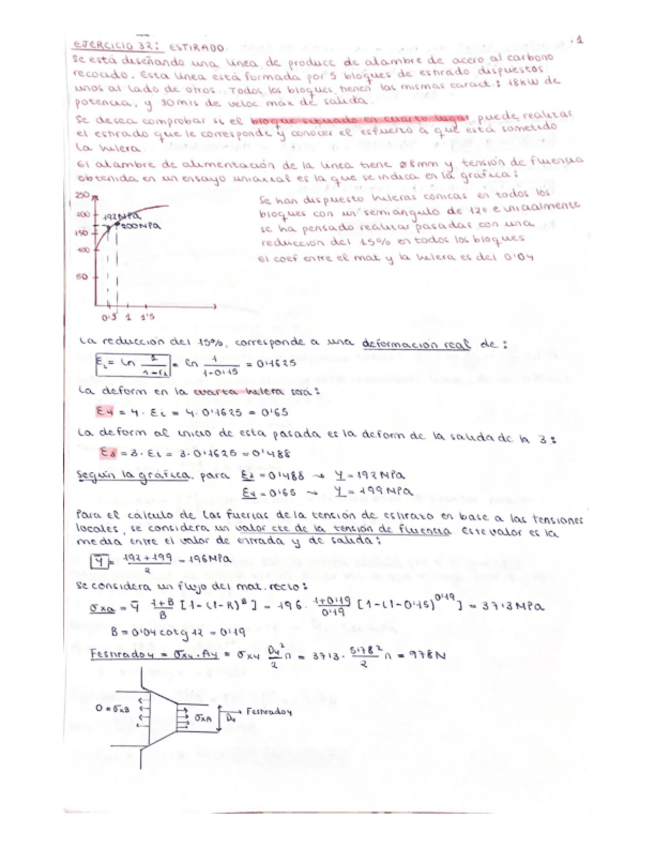 EJERCICIO 32: ESTIRADO. · 1
Se está diseñando una línea de producc de alambre de acero al carbono
recocido. Esta línea está formada por 5 bloques de estirado dispuestos
unos al lado de otros. Todos los bloques tienen las mismas caract: 18kW de
potencia, y 30 m/s de veloc máx de salida.
Se desea comprobar si el bloque situado en cuarto lugar puede realizar
el estirado que le corresponde y conocer el esfuerzo a que está sometido
la hilera.
El alambre de alimentación de la línea tiene ø8mm y tensión de fluencia
obtenida en un ensayo uniaxial es la que se indica en la gráfica:
250
200
192MPa
200MPa
150
100
50
0'5 1 1'5
Se han dispuesto hileras cónicas en todos los
bloques con un semiangulo de 12º e inicialmente
se ha pensado realizar pasadas con una
reducción del 15% en todos los bloques
El coef entre el mat y la hilera es del 0'04
La reducción del 15%, corresponde a una deformación real de:
Ei = ln 1/(1-r) = ln 1/(1-0'15) = 0'1625
La deform en la cuarta hilera será:
E4 = 4 · Ei = 4 · 0'1625 = 0'65
La deform al inicio de esta pasada es la deform de la salida de la 3:
E3 = 3 · Ei = 3 · 0'1625 = 0'488
Según la gráfica, para E3 = 0'488 → Y = 192 MPa
E4 = 0'65 → Y = 199 MPa
Para el cálculo de las fuerzas de la tensión de estirazo en base a las tensiones
locales, se considera un valor cte de la tensión de fluencia. Este valor es la
media entre el valor de entrada y de salida:
Y̅ = (192+199)/2 = 196MPa
Se considera un flujo del mat. recto:
σxa = Y̅ (1+B)/B [1-(1-R)^B] = 196 · (1+0'19)/0'19 [1-(1-0'15)^0'19] = 37'3 MPa
B = 0'04 cotg 12 = 0'19
Festirado4 = σxa · A4 = σx4 D4²/2 π = 37'3 · 5'78²/2 π = 978N
0 = σxB
σxA
D4
Festirado4